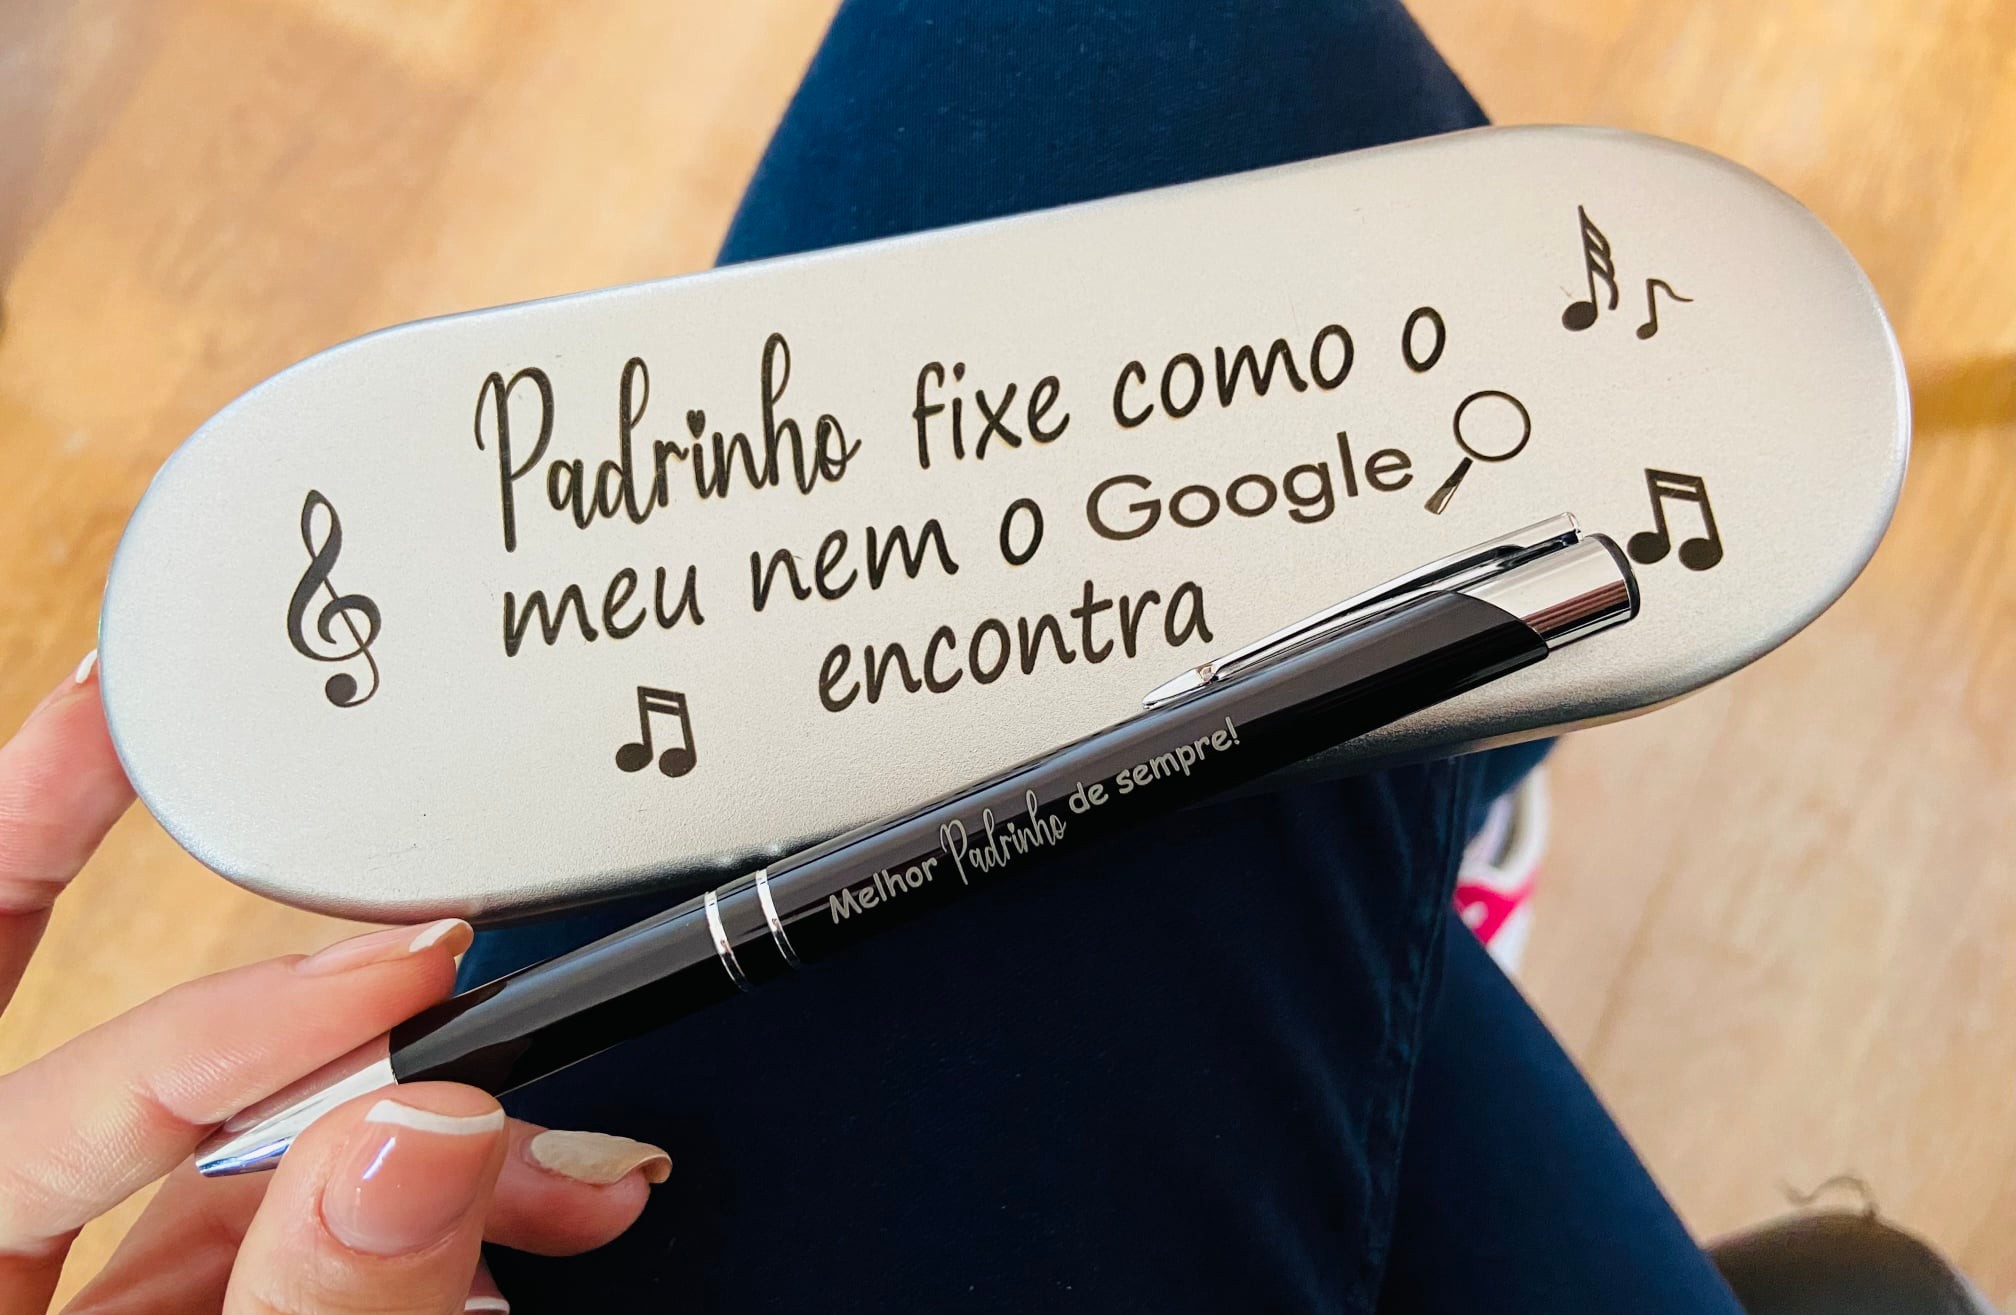 Padrinho fixe como o
meu nem o Google
encontra
Melhor Padrinho de sempre!